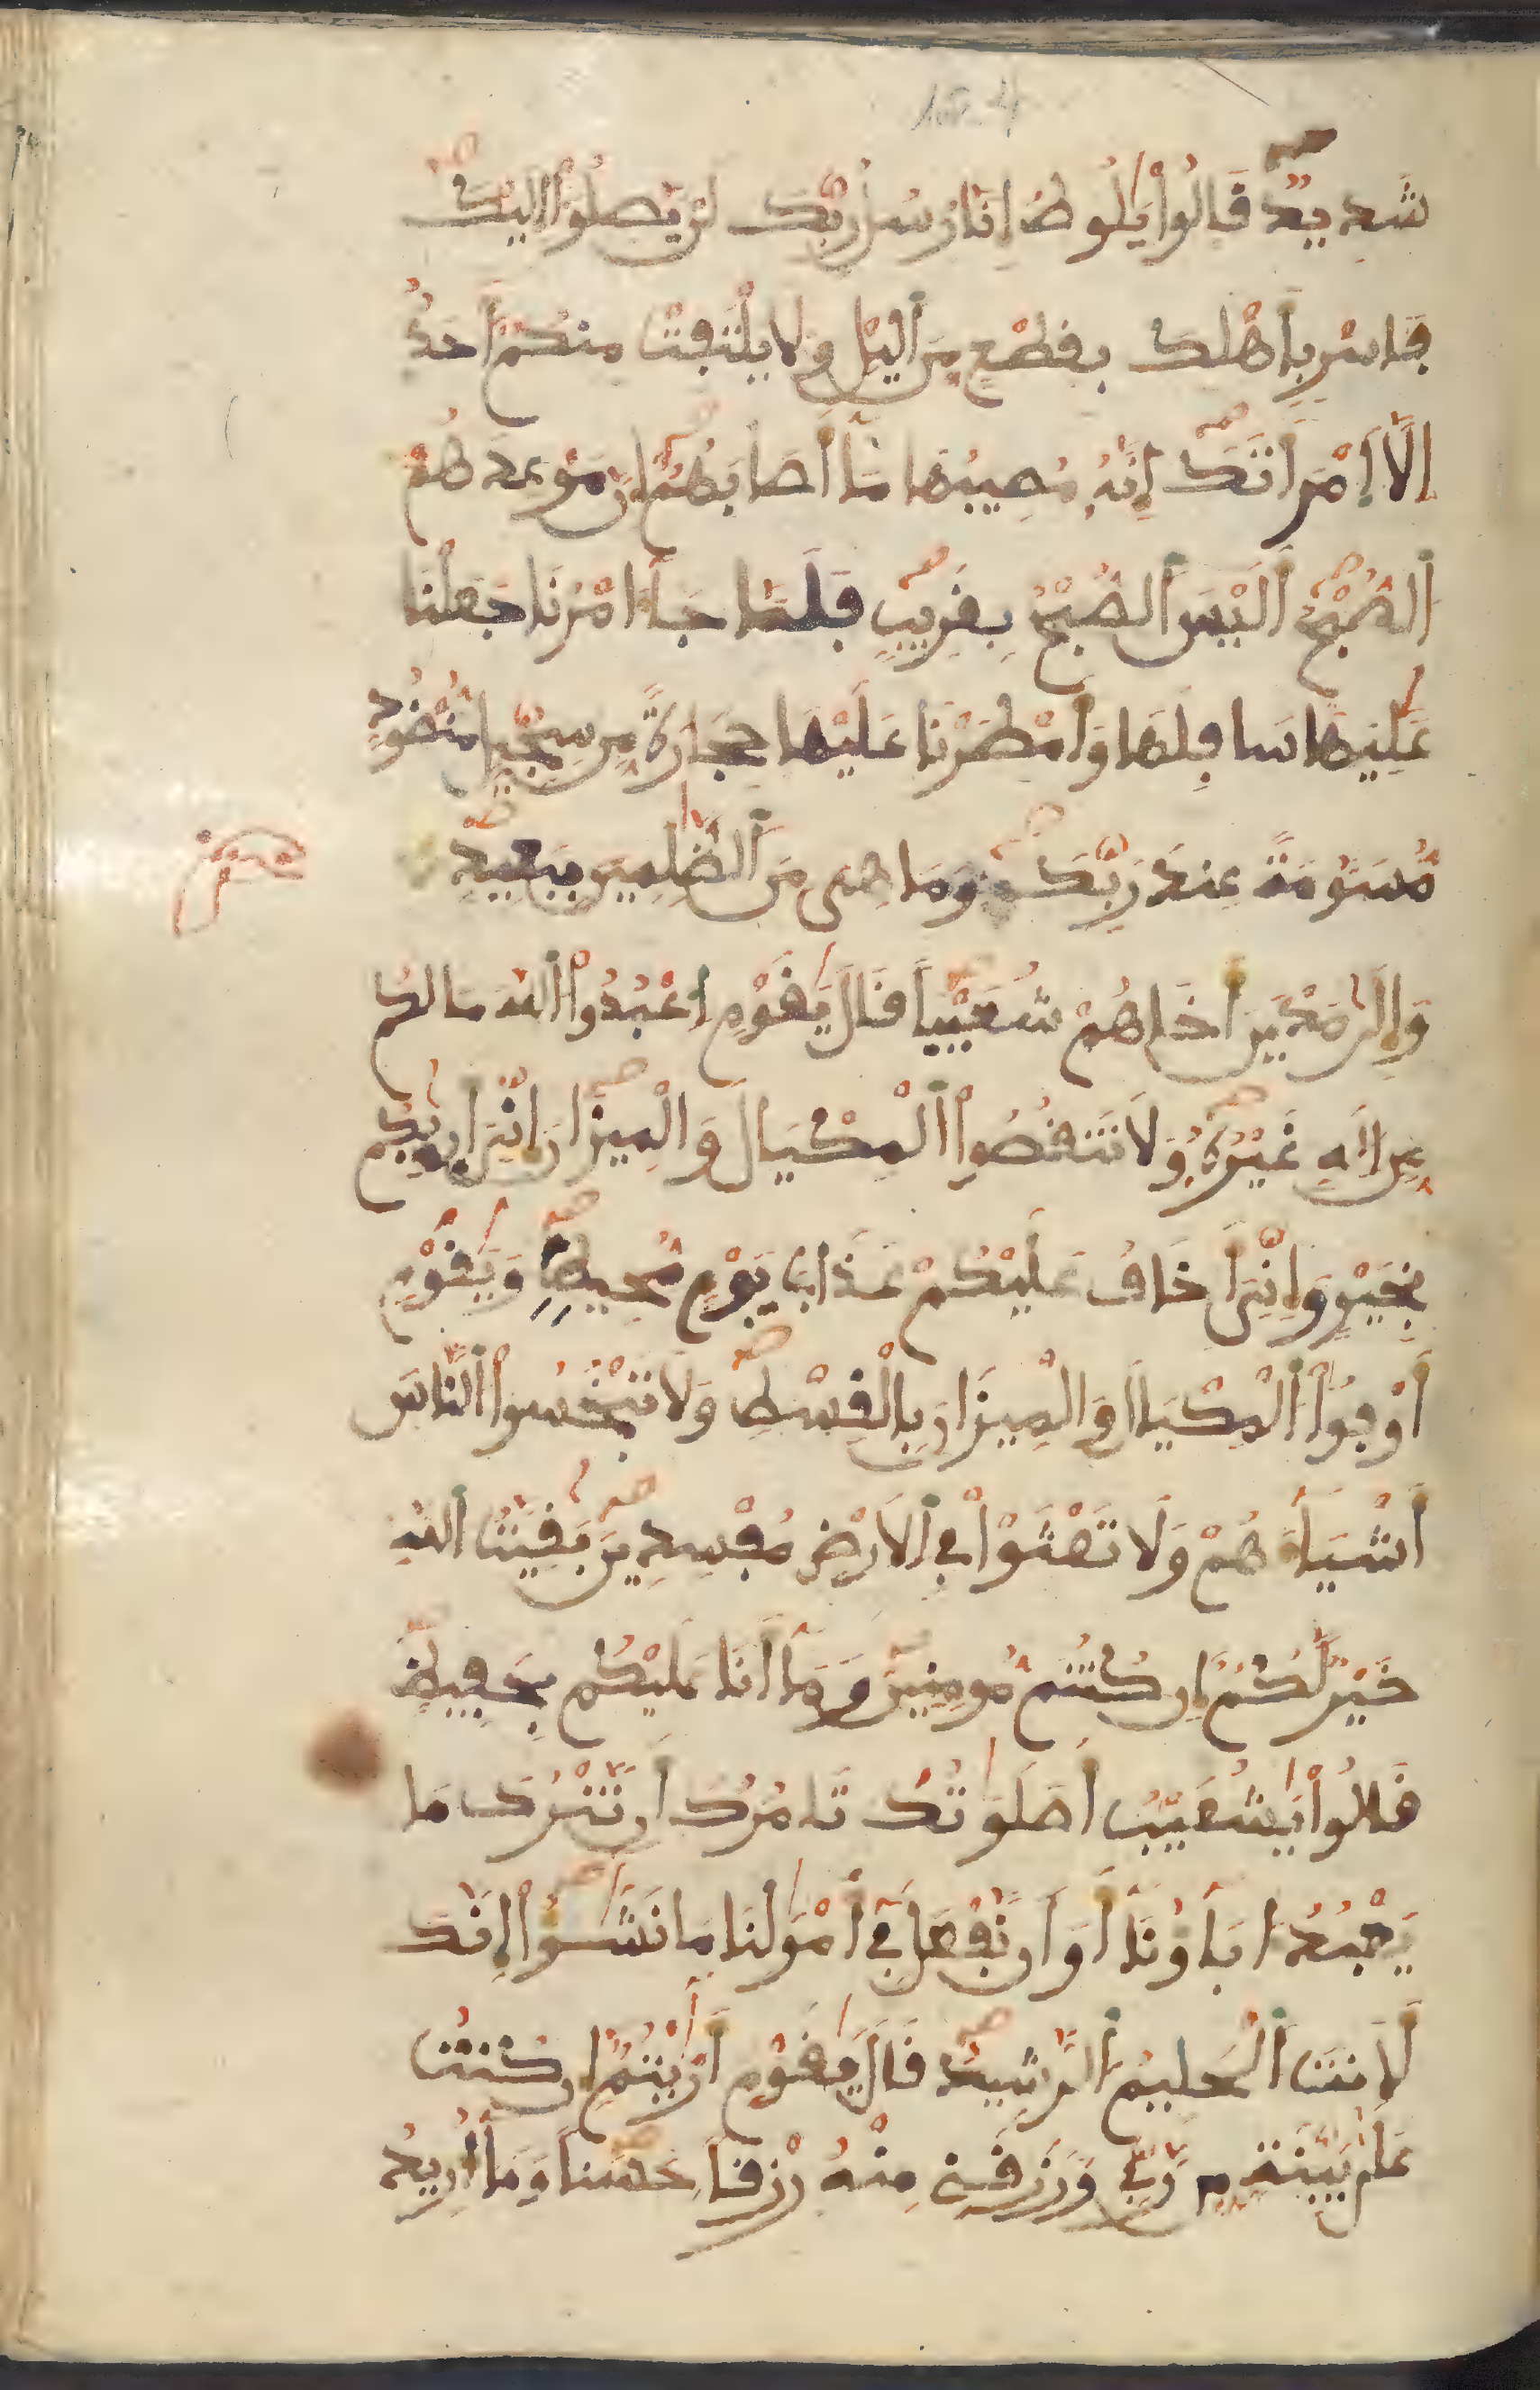 شَدِيدٍ قَالُواْ يَٰلُوطُ إِنَّا رُسُلُ رَبِّكَ لَنْ يَّصِلُوٓاْ إِلَيْكَ
فَاسْرِ بِأَهْلِكَ بِقِطْعٍ مِّنَ اَ۬ليْلِ وَلَا يَلْتَفِتْ مِنكُمُۥٓ أَحَدٌ
اِلَّا اَ۪مْرَأَتَكَ إِنَّهُۥ مُصِيبُهَا مَآ أَصَابَهُمُۥٓ إِنَّ مَوْعِدَهُمُ
اُ۬لصُّبْحُ أَلَيْسَ اَ۬لصُّبْحُ بِقَرِيبٍ فَلَمَّا جَآءَ امْرُنَا جَعَلْنَا
عَٰلِيَهَا سَافِلَهَا وَأَمْطَرْنَا عَلَيْهَا حِجَارَةً مِّن سِجِّيلٍ مَّنضُودٍ
مُّسَوَّمَةً عِندَ رَبِّكَ وَمَا هِيَ مِنَ اَ۬لظَّٰلِمِينَ بِبَعِيدٍ
وَإِلَىٰ مَدْيَنَ أَخَاهُمْ شُعَيْباً قَالَ يَٰقَوْمِ اِ۟عْبُدُواْ اُ۬للَّهَ مَا لَكُم
مِّنِ اِلَٰهٍ غَيْرُهُۥ وَلَا تَنقُصُواْ اُ۬لْمِكْيَالَ وَالْمِيزَانَ إِنِّيَ أَر۪يٰكُم
بِخَيْرٍ وَإِنِّيَ أَخَافُ عَلَيْكُمْ عَذَابَ يَوْمٍ مُّحِيطٍ وَيَٰقَوْمِ
أَوْفُواْ اُ۬لْمِكْيَالَ وَالْمِيزَانَ بِالْقِسْطِ وَلَا تَبْخَسُواْ اُ۬لنَّاسَ
أَشْيَآءَهُمْ وَلَا تَعْثَوْاْ فِي اِ۬لَارْضِ مُفْسِدِينَ بَقِيَّتُ اُ۬للَّهِ
خَيْرٌ لَّكُمُۥٓ إِن كُنتُم مُّومِنِينَ وَمَآ أَنَا عَلَيْكُم بِحَفِيظٍ
قَالُواْ يَٰشُعَيْبُ أَصَلَوَٰتُكَ تَامُرُكَ أَن نَّتْرُكَ مَا
يَعْبُدُ ءَابَآؤُنَآ أَوَ اَن نَّفْعَلَ فِي أَمْوَٰلِنَا مَا نَشَٰٓؤُاْ اِنَّكَ
لَأَنتَ اَ۬لْحَلِيمُ اُ۬لرَّشِيدُ قَالَ يَٰقَوْمِ أَرَٰيْتُمُۥٓ إِن كُنتُ
عَلَىٰ بَيِّنَةٍ مِّن رَّبِّي وَرَزَقَنِي مِنْهُ رِزْقاً حَسَناً وَمَآ أُرِيدُ